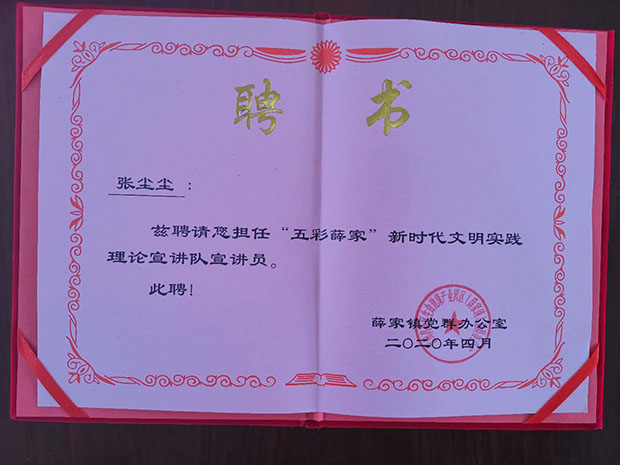 聘书
张尘尘：
兹聘请您担任“五彩薛家”新时代文明实践
理论宣讲队宣讲员。
此聘！
薛家镇党群办公室
二〇二〇年四月